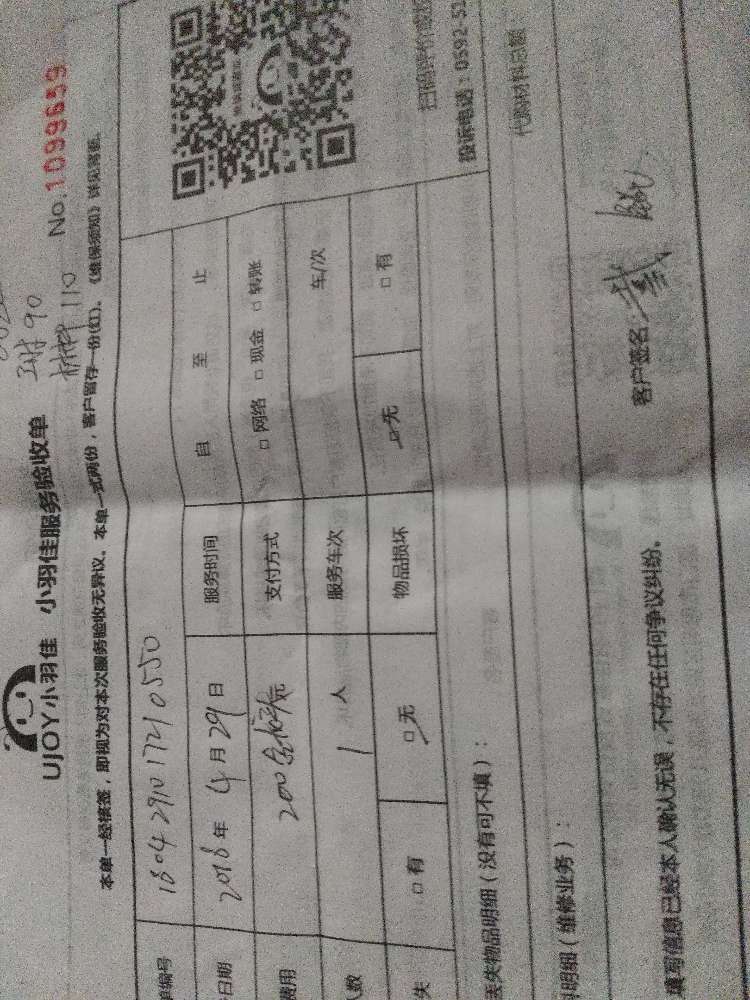 工时 90
材料 110
UJOY小羽佳 小羽佳服务验收单 No.1099659
本单一经核签,即视为对本次服务验收无异议。本单一式两份,客户留存一份(红)。《维保须知》详见背面。
单编号 1804291017210550
日期 2018年4月29日 服务时间 自 至 止
费用 200 元 支付方式 □网络 □现金 □转账
人数 1人 服务车次 车/次
失 □有 □无 物品损坏 □无 □有
扫码评价
投诉电话:0592-51
丢失物品明细(没有可不填):
明细(维修业务): 代购材料总额:
填写信息已经本人确认无误,不存在任何争议纠纷。 客户签名: